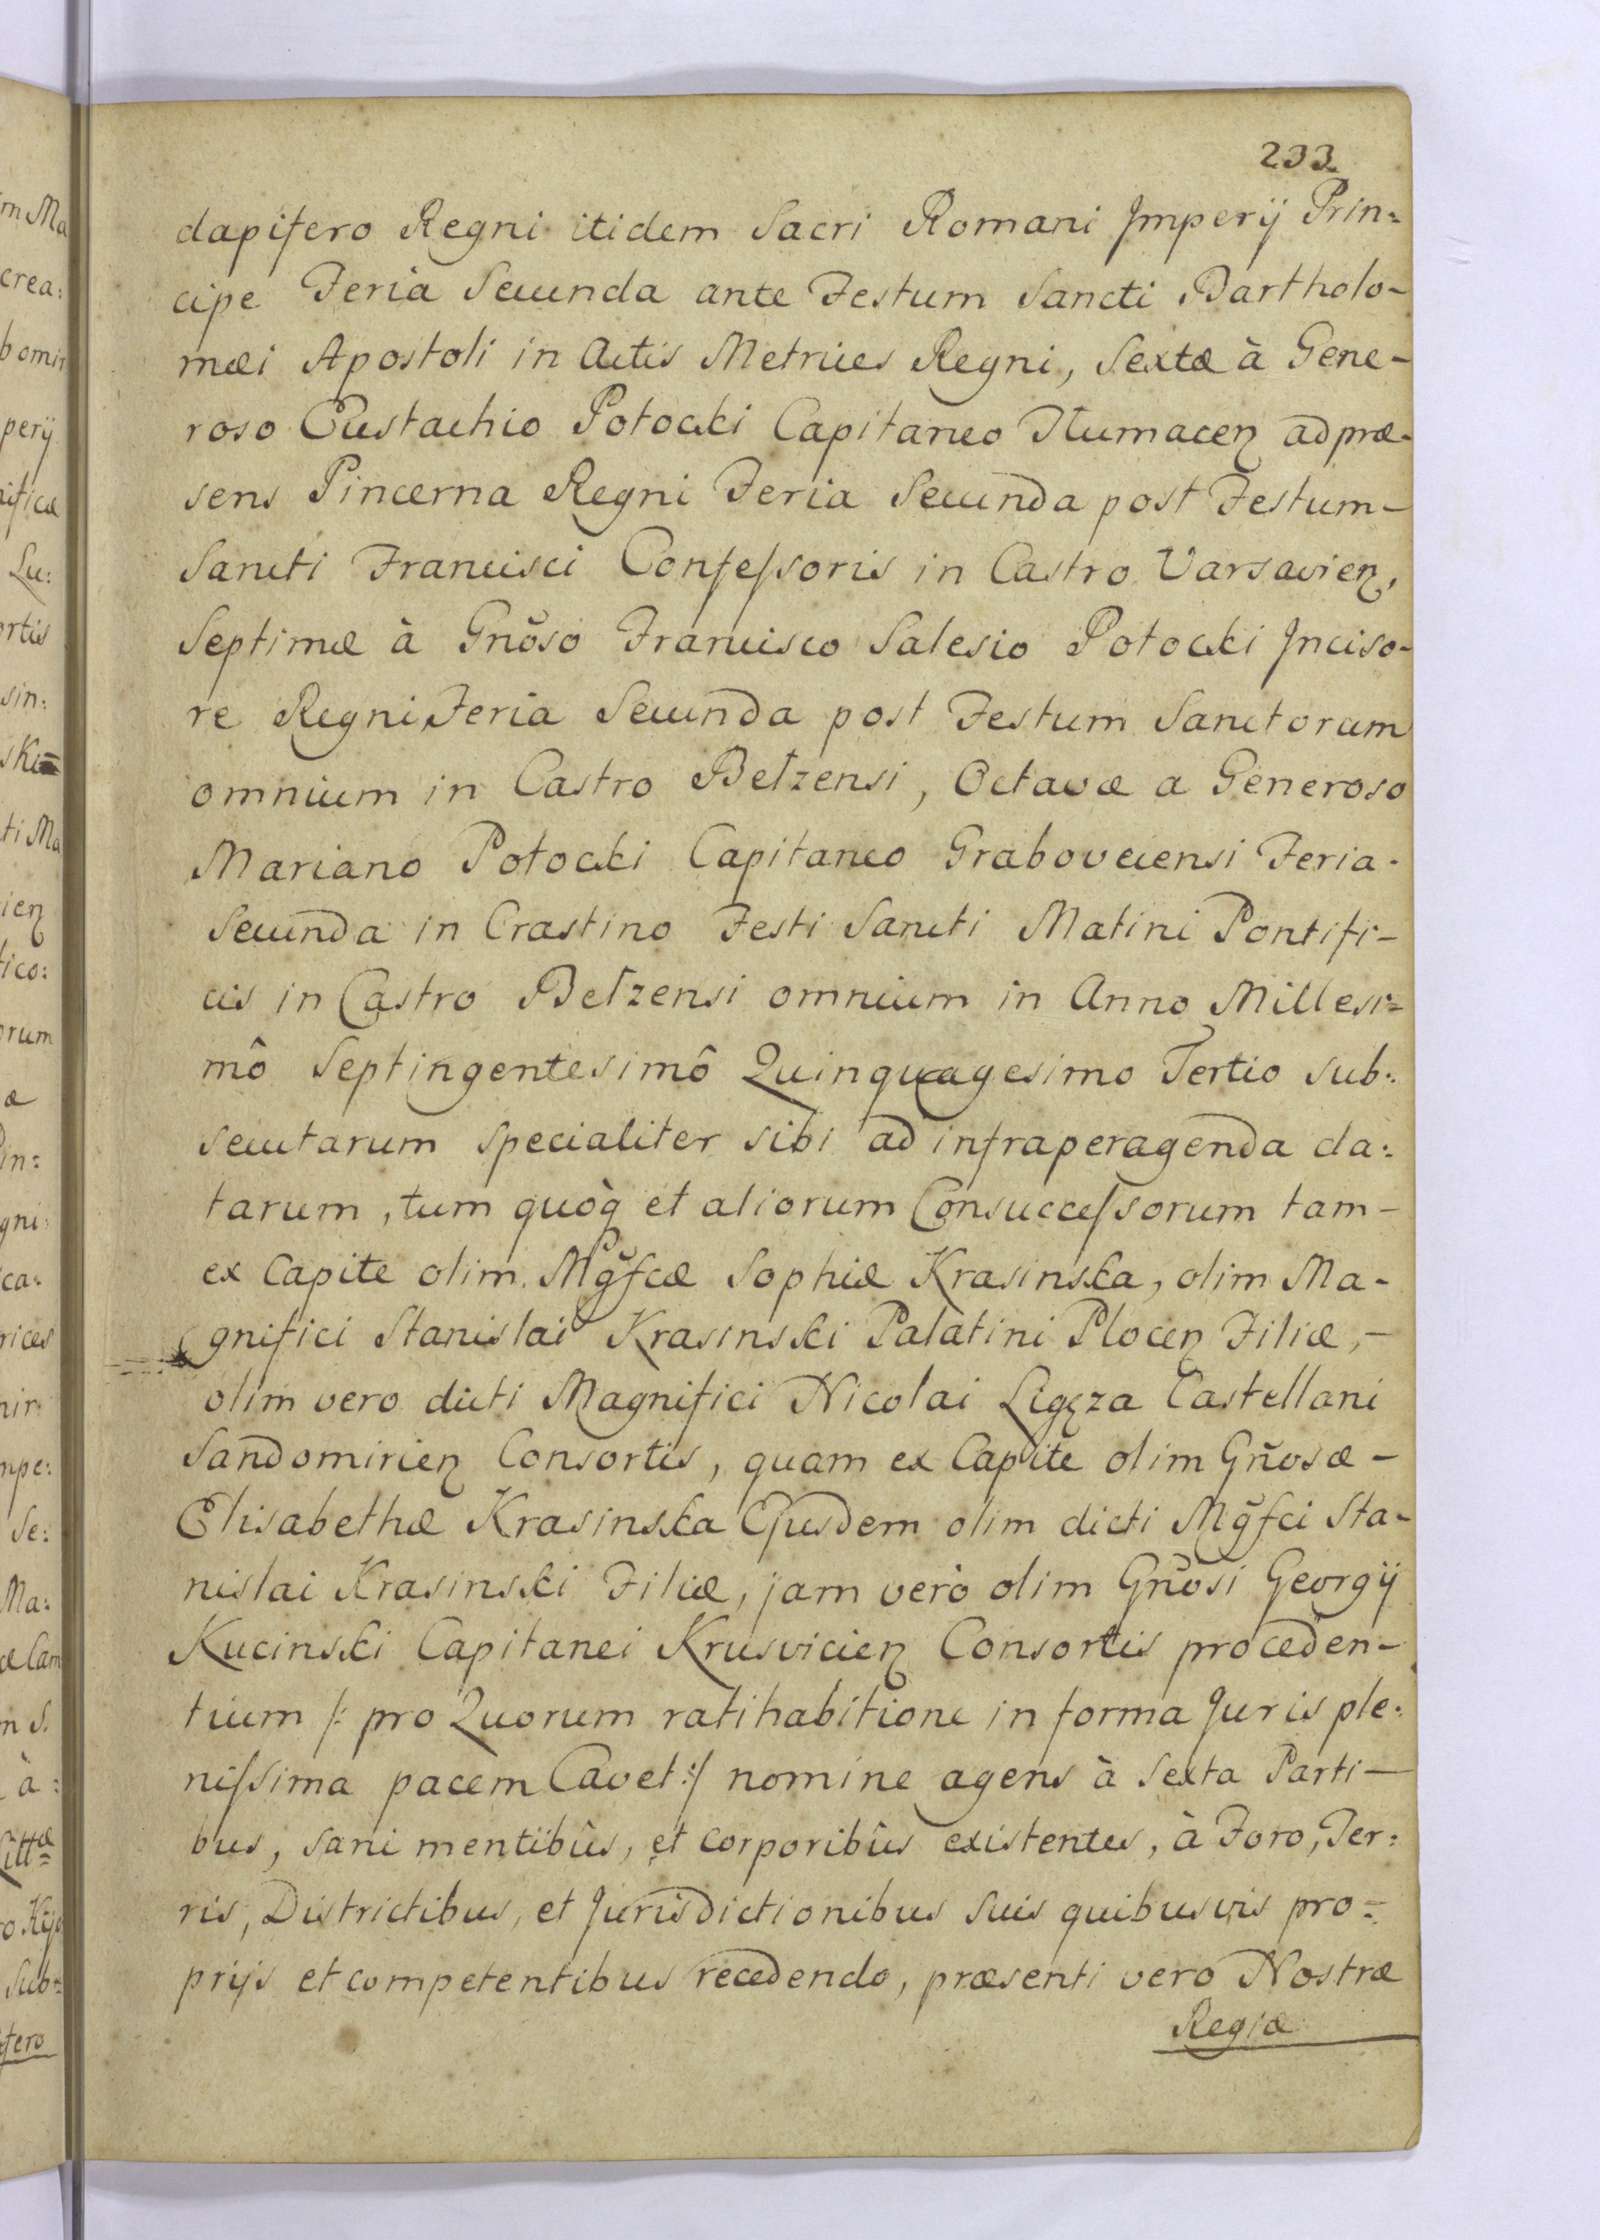 233
dapifero Regni itidem Sacri Romani Imperij Prin=
cipe Feria Secunda ante Festum Sancti Bartholo-
mæi Apostoli in Actis Metrices Regni, Sextæ à Gene-
roso Eustachio Potocki Capitaneo Tłumacen̄ ad præ-
sens Pincerna Regni Feria Secunda post Festum-
Sancti Francisci Confessoris in Castro Varsavien̄,
Septimæ à Gnõso Francisco Salesio Potocki Inciso-
re Regni, Feria Secunda post Festum Sanctorum
omnium in Castro Bełzensi, Octavæ a Generoso
Mariano Potocki Capitaneo Graboveciensi Feria-
Secunda in Crastino Festi Sancti Matini Pontifi-
cis in Castro Bełzensi omnium in Anno Millesi=
mô Septingentesimô Quinquagesimo Tertio sub=
secutarum specialiter sibi ad infraperagenda da=
tarum, tum quòq et aliorum Consuccessorum tam-
ex Capite olim Mg̃fcæ Sophiæ Krasinska, olim Ma-
gnifici Stanislai Krasinski Palatini Plocen̄ Filiæ,-
olim vero dicti Magnifici Nicolai Ligęza Castellani
Sandomirien̄ Consortis, quam ex Capite olim Gñosæ-
Elisabethæ Krasinska Ejusdem olim dicti Mg̃fci Sta-
nislai Krasinski Filiæ, jam verò olim Gñosi Georgij
Kucinski Capitanei Krusvicien̄ Consortis proceden-
tium /: pro Quorum ratihabitione in forma Juris ple=
nissima pacem Cavet :/ nomine agens à Sexta Parti-
bus, sani mentibûs, et corporibûs existentes, à Foro, Ter=
ris, Districtibus, et Jurisdictionibus suis quibusvis pro=
prijs et competentibus recedendo, præsenti vero Nostræ
Regiæ